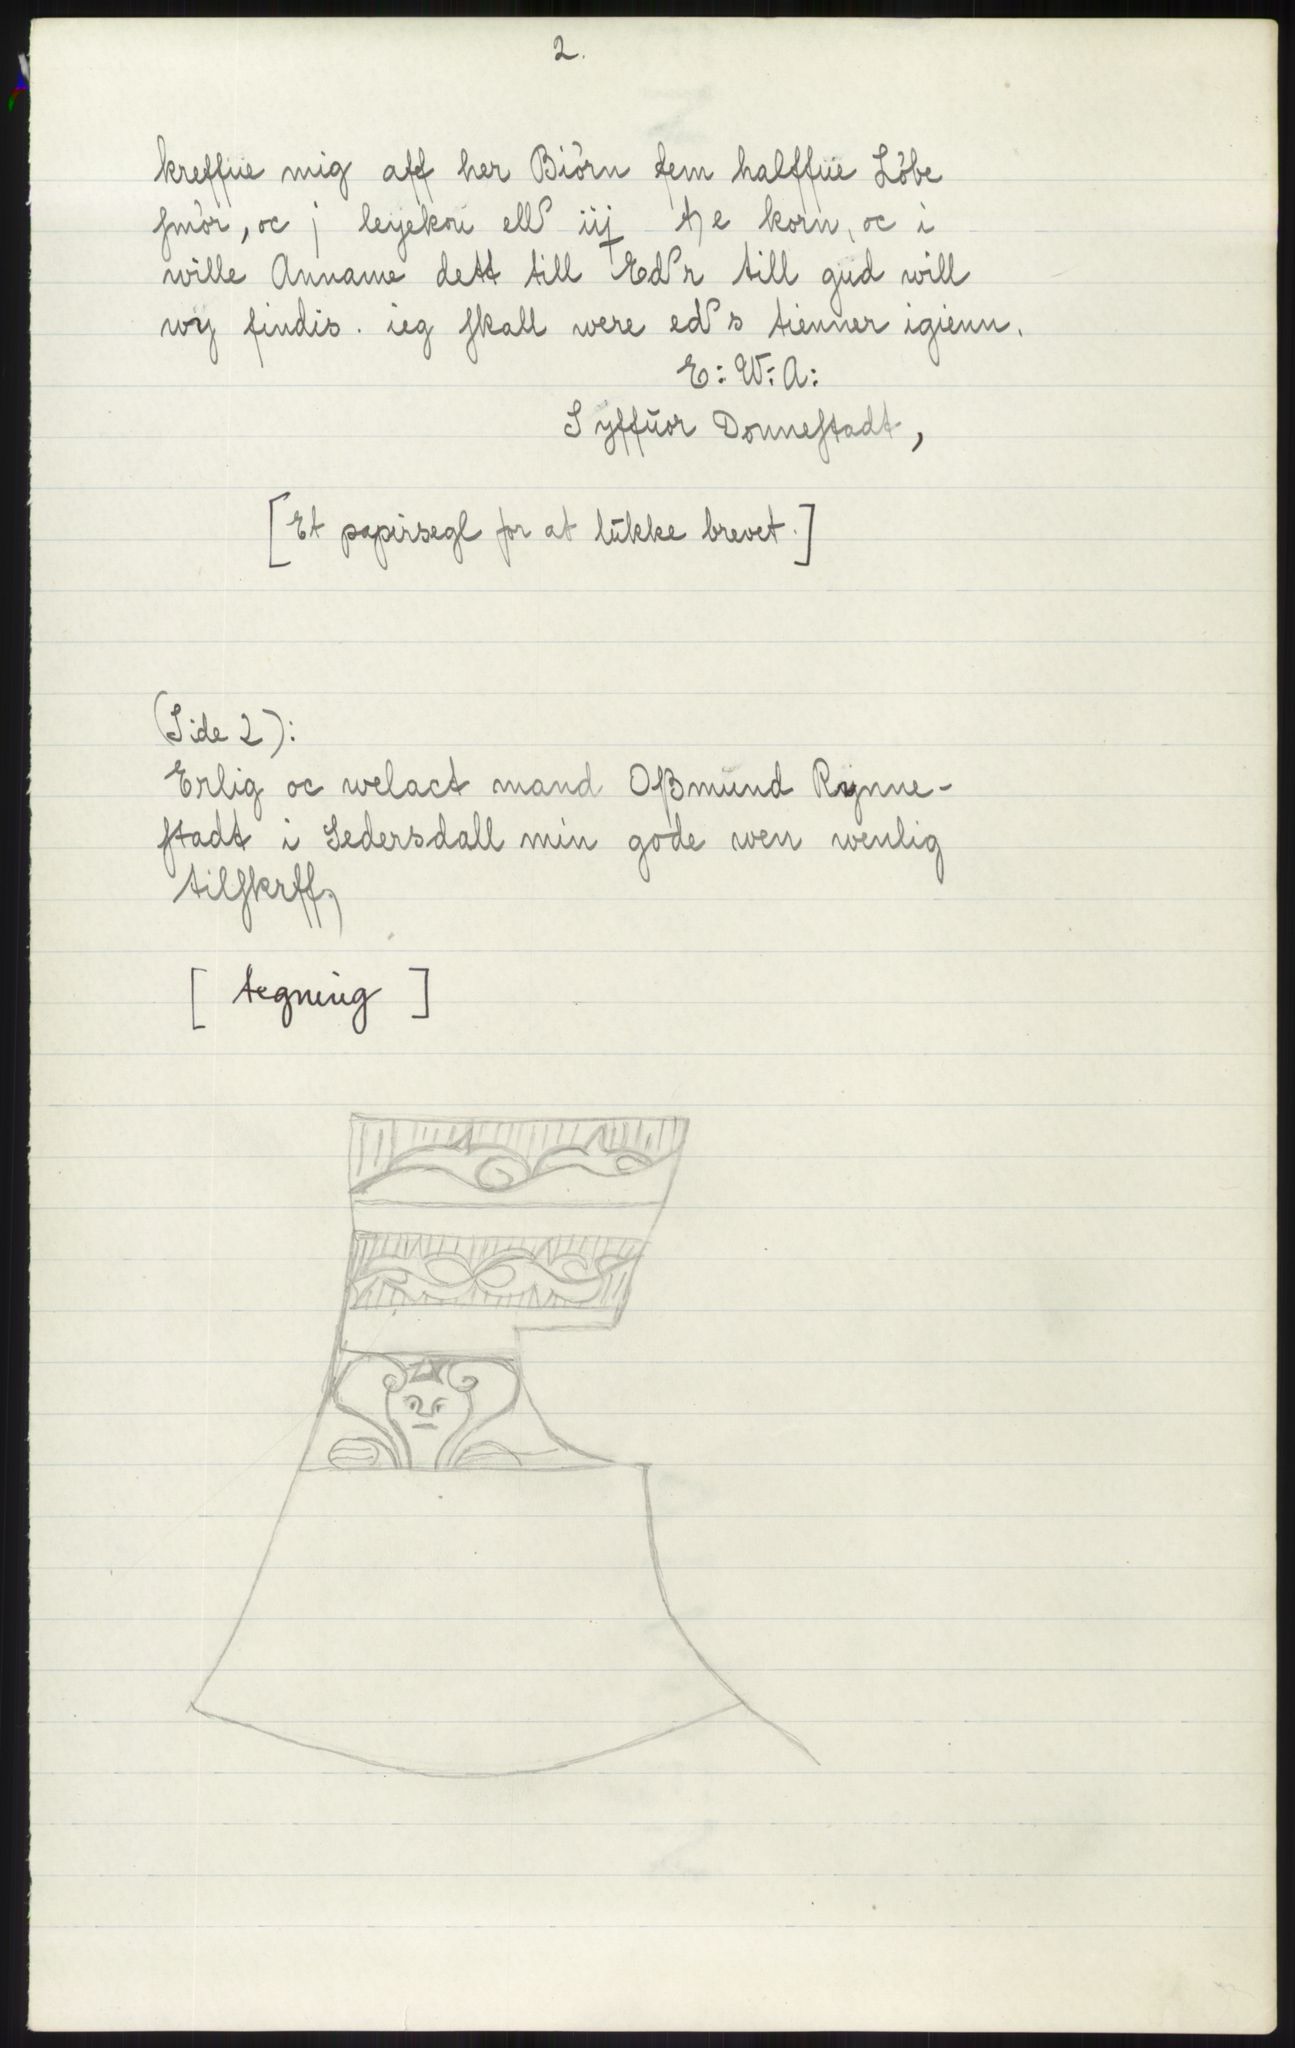 2.
kreffue mig aff her Biörn fem halffue Löbe
smör, oc j leyekou ell iij t e korn, oc i
wille Anname dett till Ed r till gud will
wy findis. ieg skall were ed s tienner igienn.
E: W: A:
Syffuor Donnestadt,
[Et papirsegl for at lukke brevet.]
(Side 2):
Erlig oc welact mand Oßmund Rynne-
stadt i Sedersdall min gode wen wenlig
tilskrff,
[ tegning ]